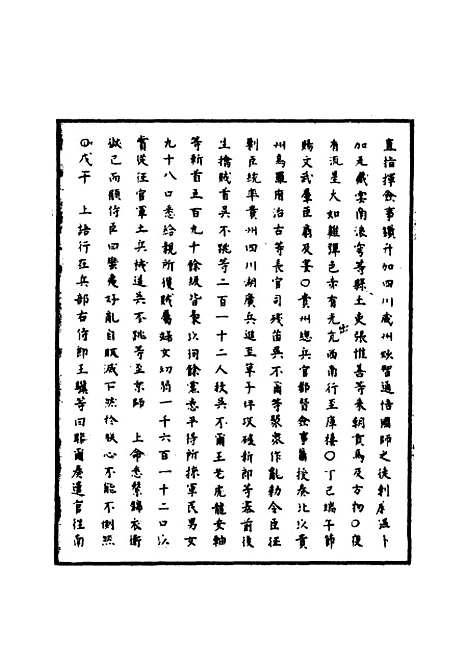 直指揮僉事鑽升加四川威州妙智通悟國師之徒剌麻溫卜
加无藏雲南浪穹等縣土吏張惟善等來朝貢馬及方物○夜
有流星大如雞彈色赤有光出西南行至庫樓○丁巳端午節
賜文武羣臣扇及宴○貴州總兵官都督僉事蕭授奏北以貴
州烏羅府治古荅長官司殘苗吳不爾等聚眾作亂勅令臣征
剿臣統率貴州四川湖廣兵進至箪子坪攻磋新郎等寨前後
生擒賊首吳不跳等二百一十二人技吳不爾王老虎龍女軸
等斬首五百九十餘級皆梟以徇餘黨悉平得所掠軍民男女
九十八口悉給親所獲賊屬婦女幼箚一千六百一十二口以
賞從征官軍土兵械送吳不跳等至京師 上命悉繫錦衣衛
獄已而顧侍臣曰蠻夷好亂自取滅亡然於朕心不能不惻然
○戊午 上諭行在兵部右侍郎王驥等曰昭爾奏遣官往南